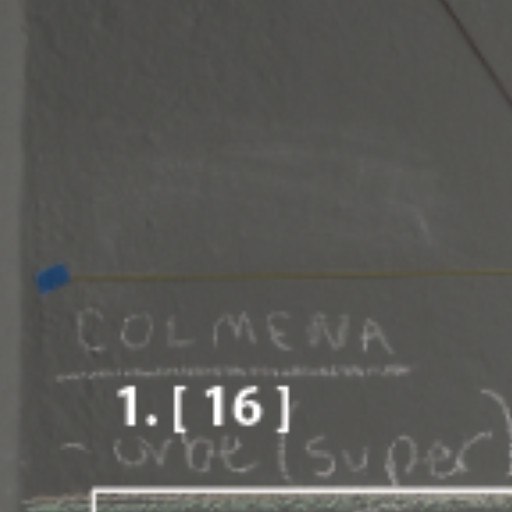 COLMENA
1. [ 16 ]
- orbe (super)